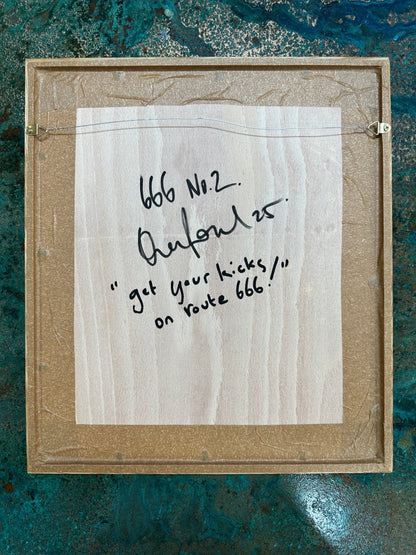 666 No.2.
25.
"get your kicks
on route 666!"